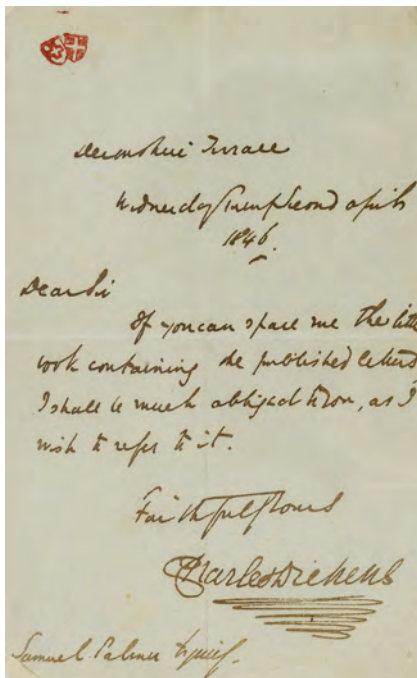 Devonshire Terrace
Wednesday Twenty Second April
1846.
Dear Sir
If you can spare me the little
book containing the published letters
I shall be much obliged to you, as I
wish to refer to it.
Faithfully Yours
Charles Dickens
Samuel Palmer Esquire.